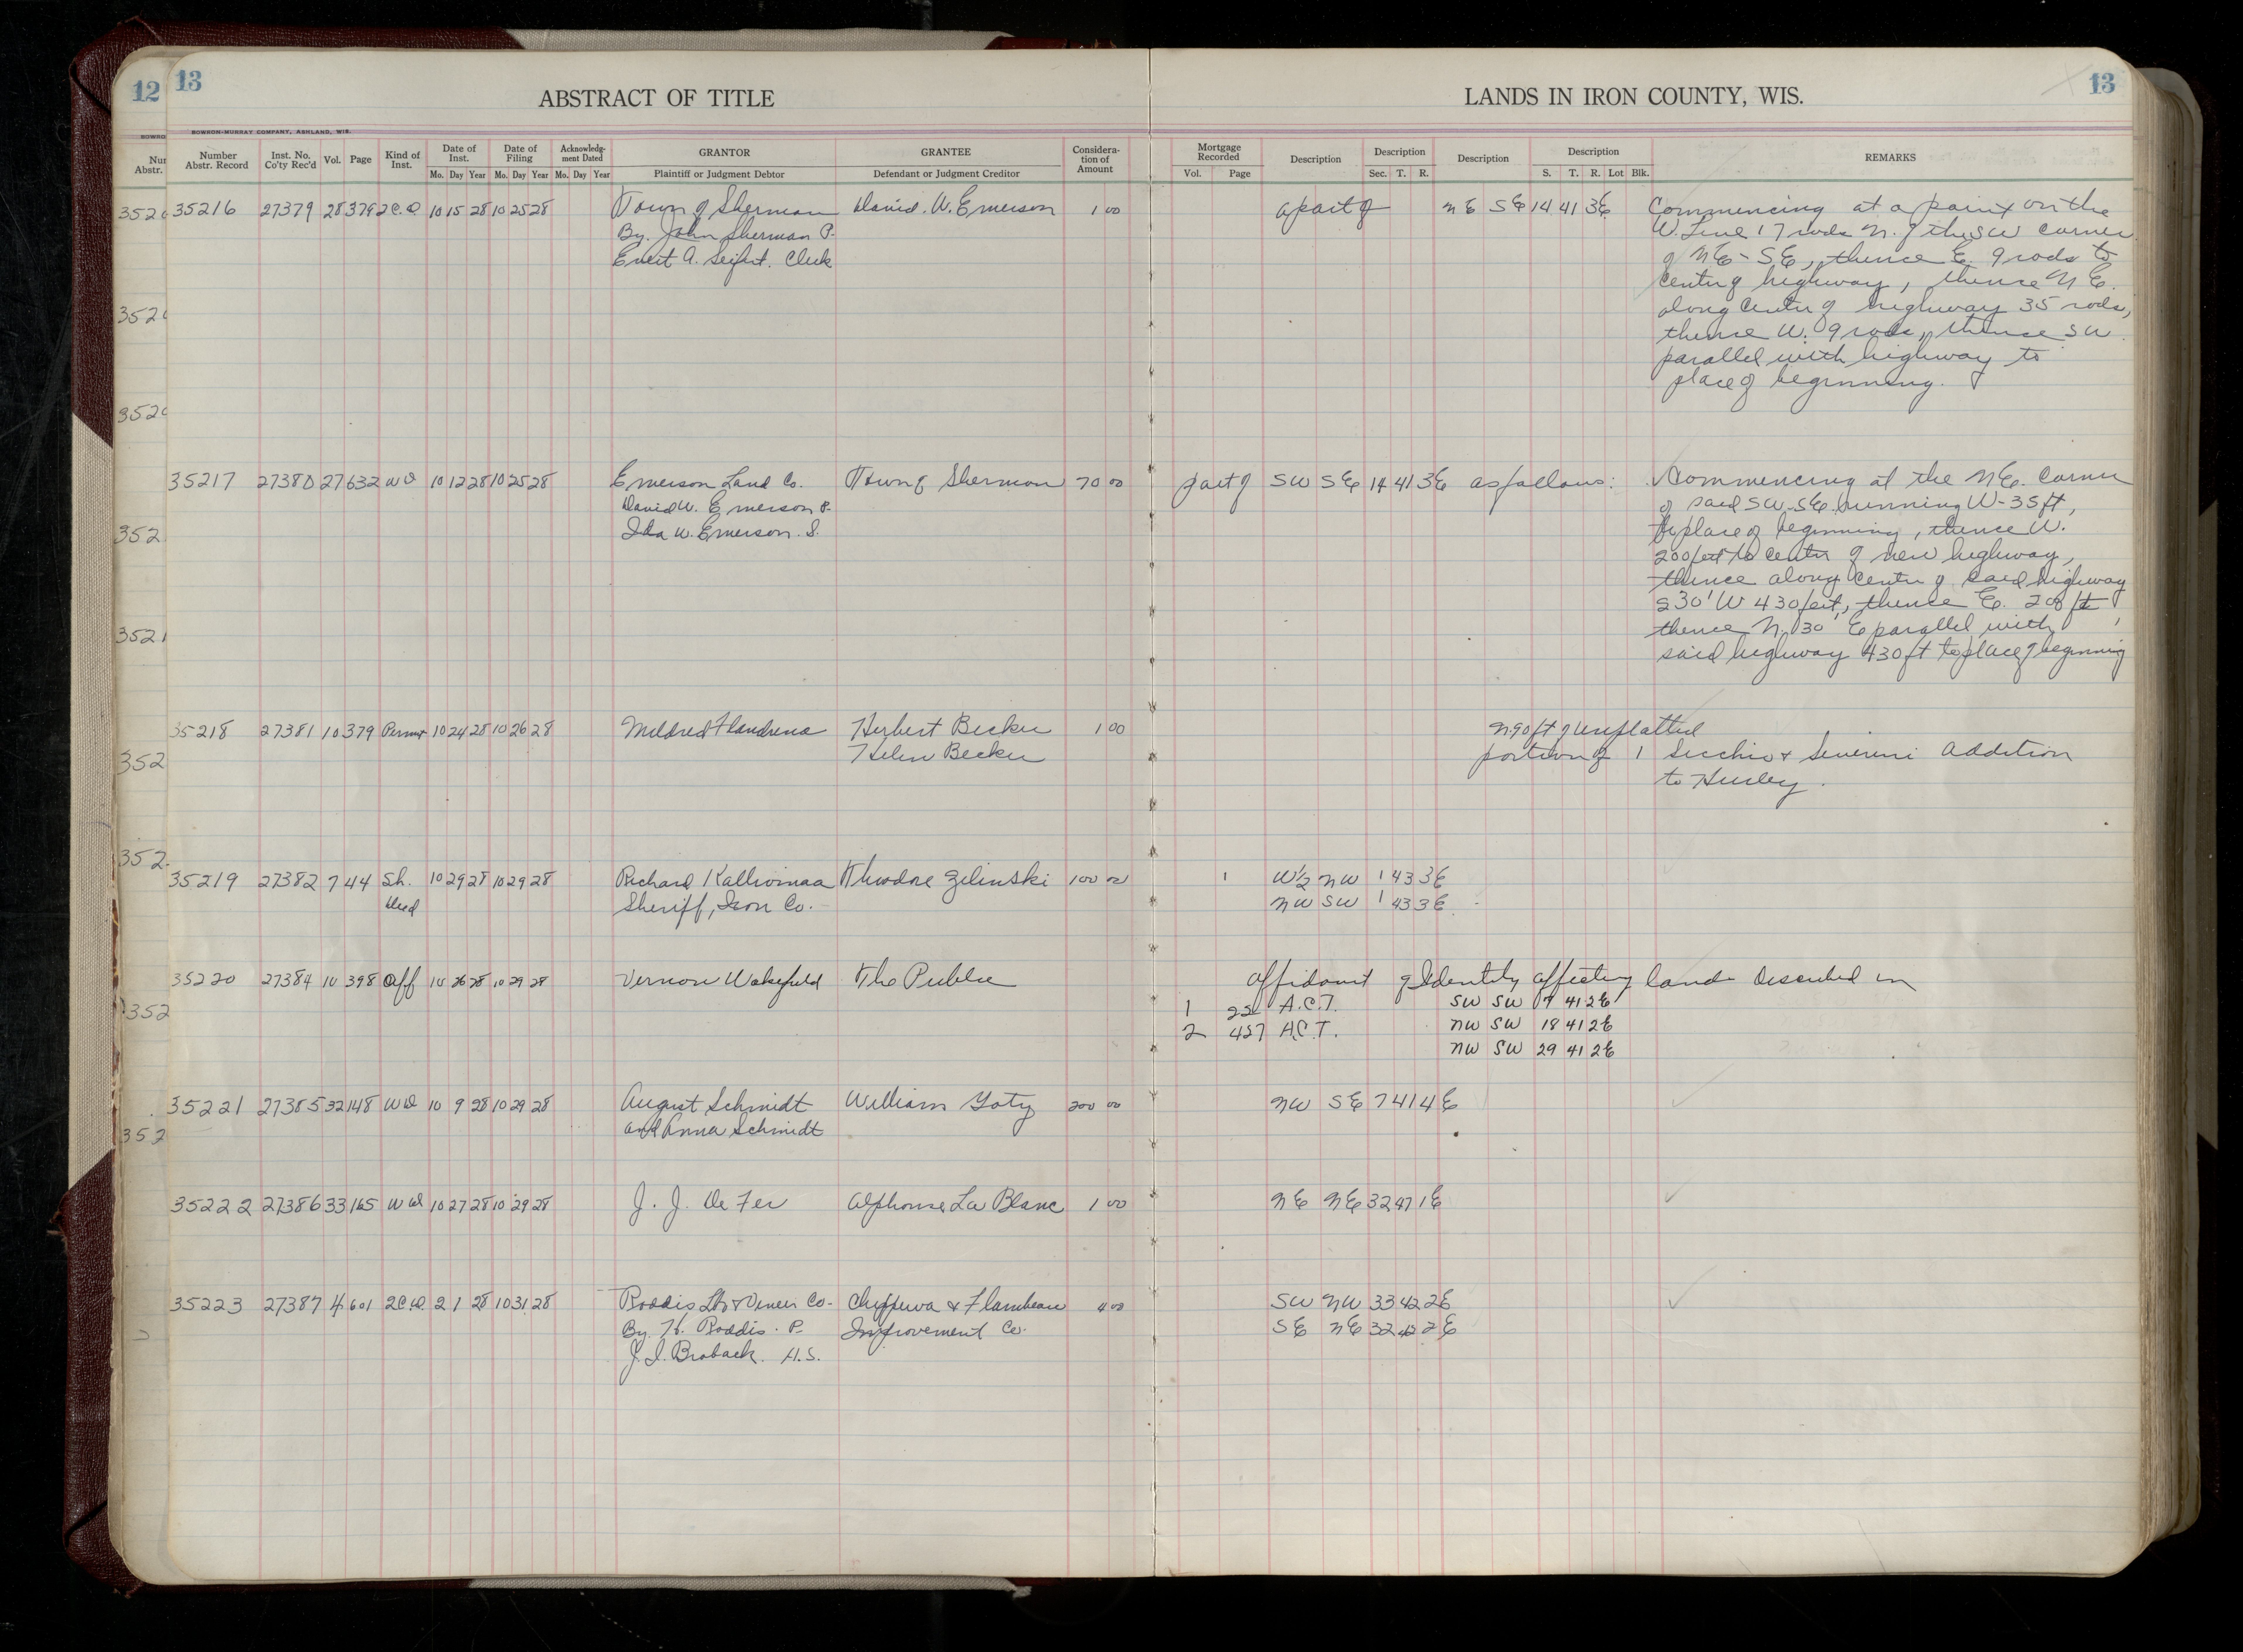 12 13
ABSTRACT OF TITLE
LANDS IN IRON COUNTY, WIS.
13
BOWRON-MURRAY COMPANY, ASHLAND, WIS.
Number Abstr. Record | Inst. No. Co'ty Rec'd | Vol. | Page | Kind of Inst. | Date of Inst. Mo. Day Year | Date of Filing Mo. Day Year | Acknowledg-ment Dated Mo. Day Year | GRANTOR Plaintiff or Judgment Debtor | GRANTEE Defendant or Judgment Creditor | Considera-tion of Amount | Mortgage Recorded Vol. Page | Description | Description Sec. T. R. | Description | Description S. T. R. Lot Blk. | REMARKS
35216 27379 28 379 2C.D. 10 15 28 10 25 28 Town of Sherman David. W. Emerson 1 00 a part of NE SE 14 41 3E Commencing at a point on the
By. John Sherman P. W. Line 17 rods N. of the SW corner
Evert A. Seifert. Clerk of NE-SE, thence E. 9 rods to
center of highway, thence NE.
along center of highway 35 rods,
thence W. 9 rods, thence SW.
parallel with highway to
place of beginning.
35217 27380 27 632 WD 10 12 28 10 25 28 Emerson Land Co. Town of Sherman 70 00 part of SW SE 14 41 3E as follows: Commencing at the NE. Corner
David W. Emerson P. of said SW-SE running W-35 ft,
Ida W. Emerson. S. to place of beginning, thence W.
200 feet to center of new highway,
thence along center of said highway
S 30' W 430 feet, thence E. 208 ft
thence N. 30' E parallel with
said highway 430 ft to place of beginning
35218 27381 10 379 Permit 10 24 28 10 26 28 Mildred Flandrena Herbert Becker 1 00 N. 90 ft of Unplatted
Helen Becker portion of 1 Secchi & Severini Addition
to Hurley.
35219 27382 7 44 Sh. 10 29 28 10 29 28 Richard Kallviomaa Theodore Zelinski 100 00 W½ NW 1 43 3E
Deed Sheriff, Iron Co. NW SW 1 43 3E
35220 27384 10 398 Aff 10 26 28 10 29 28 Vernon Wakefield The Public Affidavit of Identity affecting lands described in
1 221 A.C.T. SW SW 17 41 2E
2 427 A.C.T. NW SW 18 41 2E
NW SW 29 41 2E
35221 27385 32 148 WD 10 9 28 10 29 28 August Schmidt William Yoty 200 00 NW SE 7 41 4E
and Anna Schmidt
35222 27386 33 165 WD 10 27 28 10 29 28 J. J. De Fer Alphonse La Blanc 1 00 NE NE 32 47 1E
35223 27387 4 601 2C.D. 2 1 28 10 31 28 Roddis Lbr & Veneer Co. Chippewa & Flambeau 4 00 SW NW 33 42 2E
By. H. Roddis. P. Improvement Co. SE NE 32 42 2E
J. I. Braback. A.S.